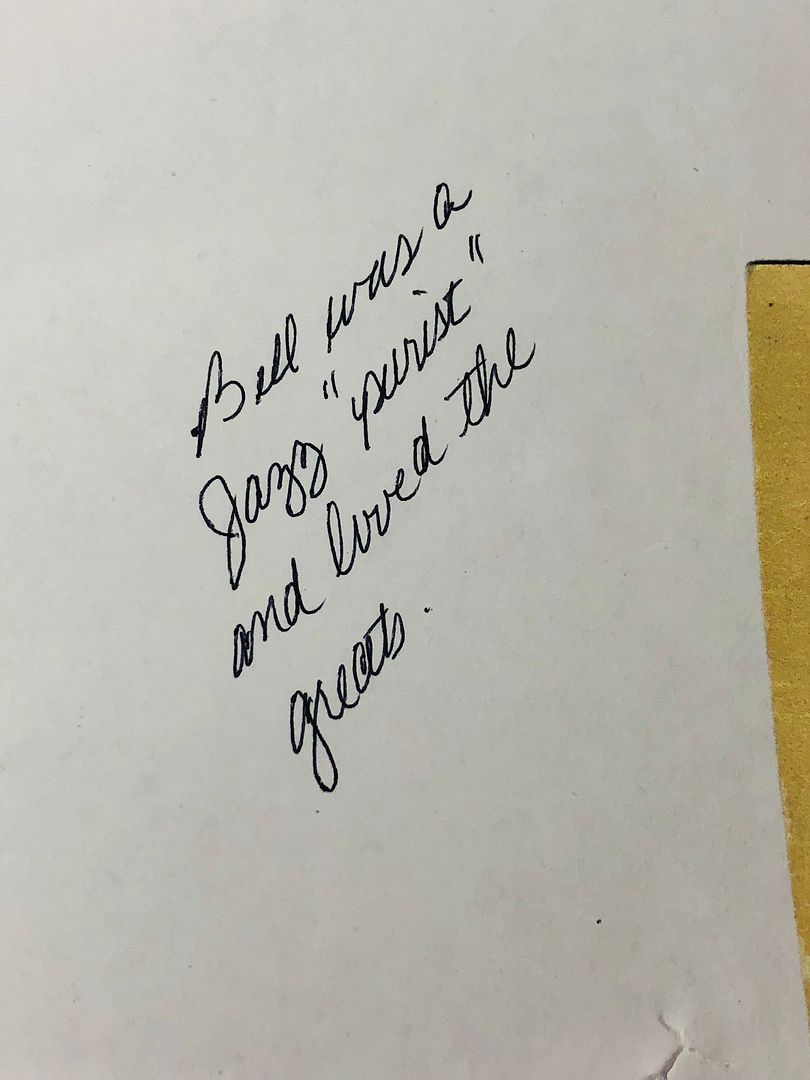 Bill was a
Jazz "purist"
and loved the
greats.